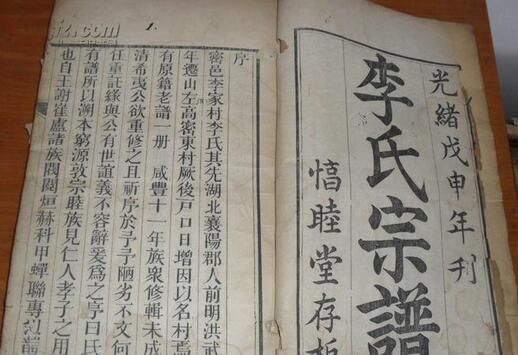 光緒戊申年刊
李氏宗譜
惇睦堂存板
1.
序
密邑李家村李氏其先湖北襄陽郡人前明洪武
年遷山左高密東村厥後戶口日增因以名村焉
有原籍老譜一册 咸豐十一年族衆修輯未成
清希夷公欲重修之且祈序於予予陋劣不文何
任重託緣與公有世誼義不容辭爰為之序曰氏
有譜所以溯本窮源敦宗睦族見仁人孝子之用
也自王謝崔盧諸族閥閱烜赫科甲蟬聯專